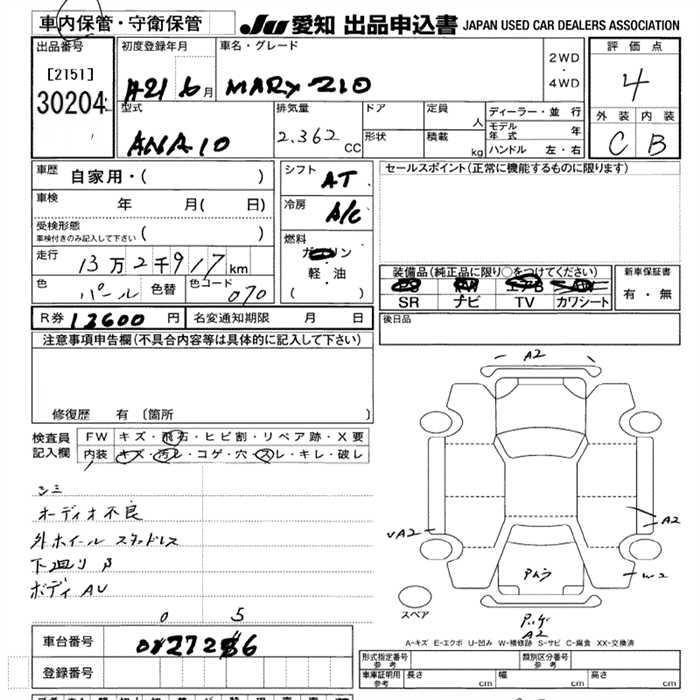 車内保管・守衛保管
JU 愛知 出品申込書 JAPAN USED CAR DEALERS ASSOCIATION
出品番号
[2151]
30204
初度登録年月
H21 6月
車名・グレード
MARX 210
2WD
・
4WD
評価点
4
外装 内装
C B
型式
ANA10
排気量
2.362 CC
ドア
形状
定員 人
積載 kg
ディーラー・並行
モデル年式 年
ハンドル 左・右
車歴 自家用・( )
車検 年 月( 日)
受検形態
車検付きのみ記入して下さい ( )
走行 13万2千917km
色 パール 色替 色コード 070
シフト AT
冷房 A/C
燃料
ガソリン
軽・油
( )
セールスポイント(正常に機能するものに限ります)
装備品(純正品に限り○をつけてください)
SR ナビ TV カワシート
新車保証書
有・無
R券 12600円 名変通知期限 月 日
後日品
注意事項申告欄(不具合内容等は具体的に記入して下さい)
修復歴 有〔箇所 〕
検査員記入欄
FW キズ・飛石・ヒビ割・リペア跡・X要
内装 キズ・汚レ・コゲ・穴・スレ・キレ・破レ
シミ
オーディオ不良
外ホイール スタッドレス
下廻り
ボディ AU
A2
A2
A2
W2
スペア
A2
A-キズ E-エクボ U-凹み W-補修跡 S-サビ C-腐食 XX-交換済
0 5
車台番号
登録番号
形式指定番号 参考
類別区分番号 参考
車庫証明用 参考 長さ cm 幅 cm 高さ cm